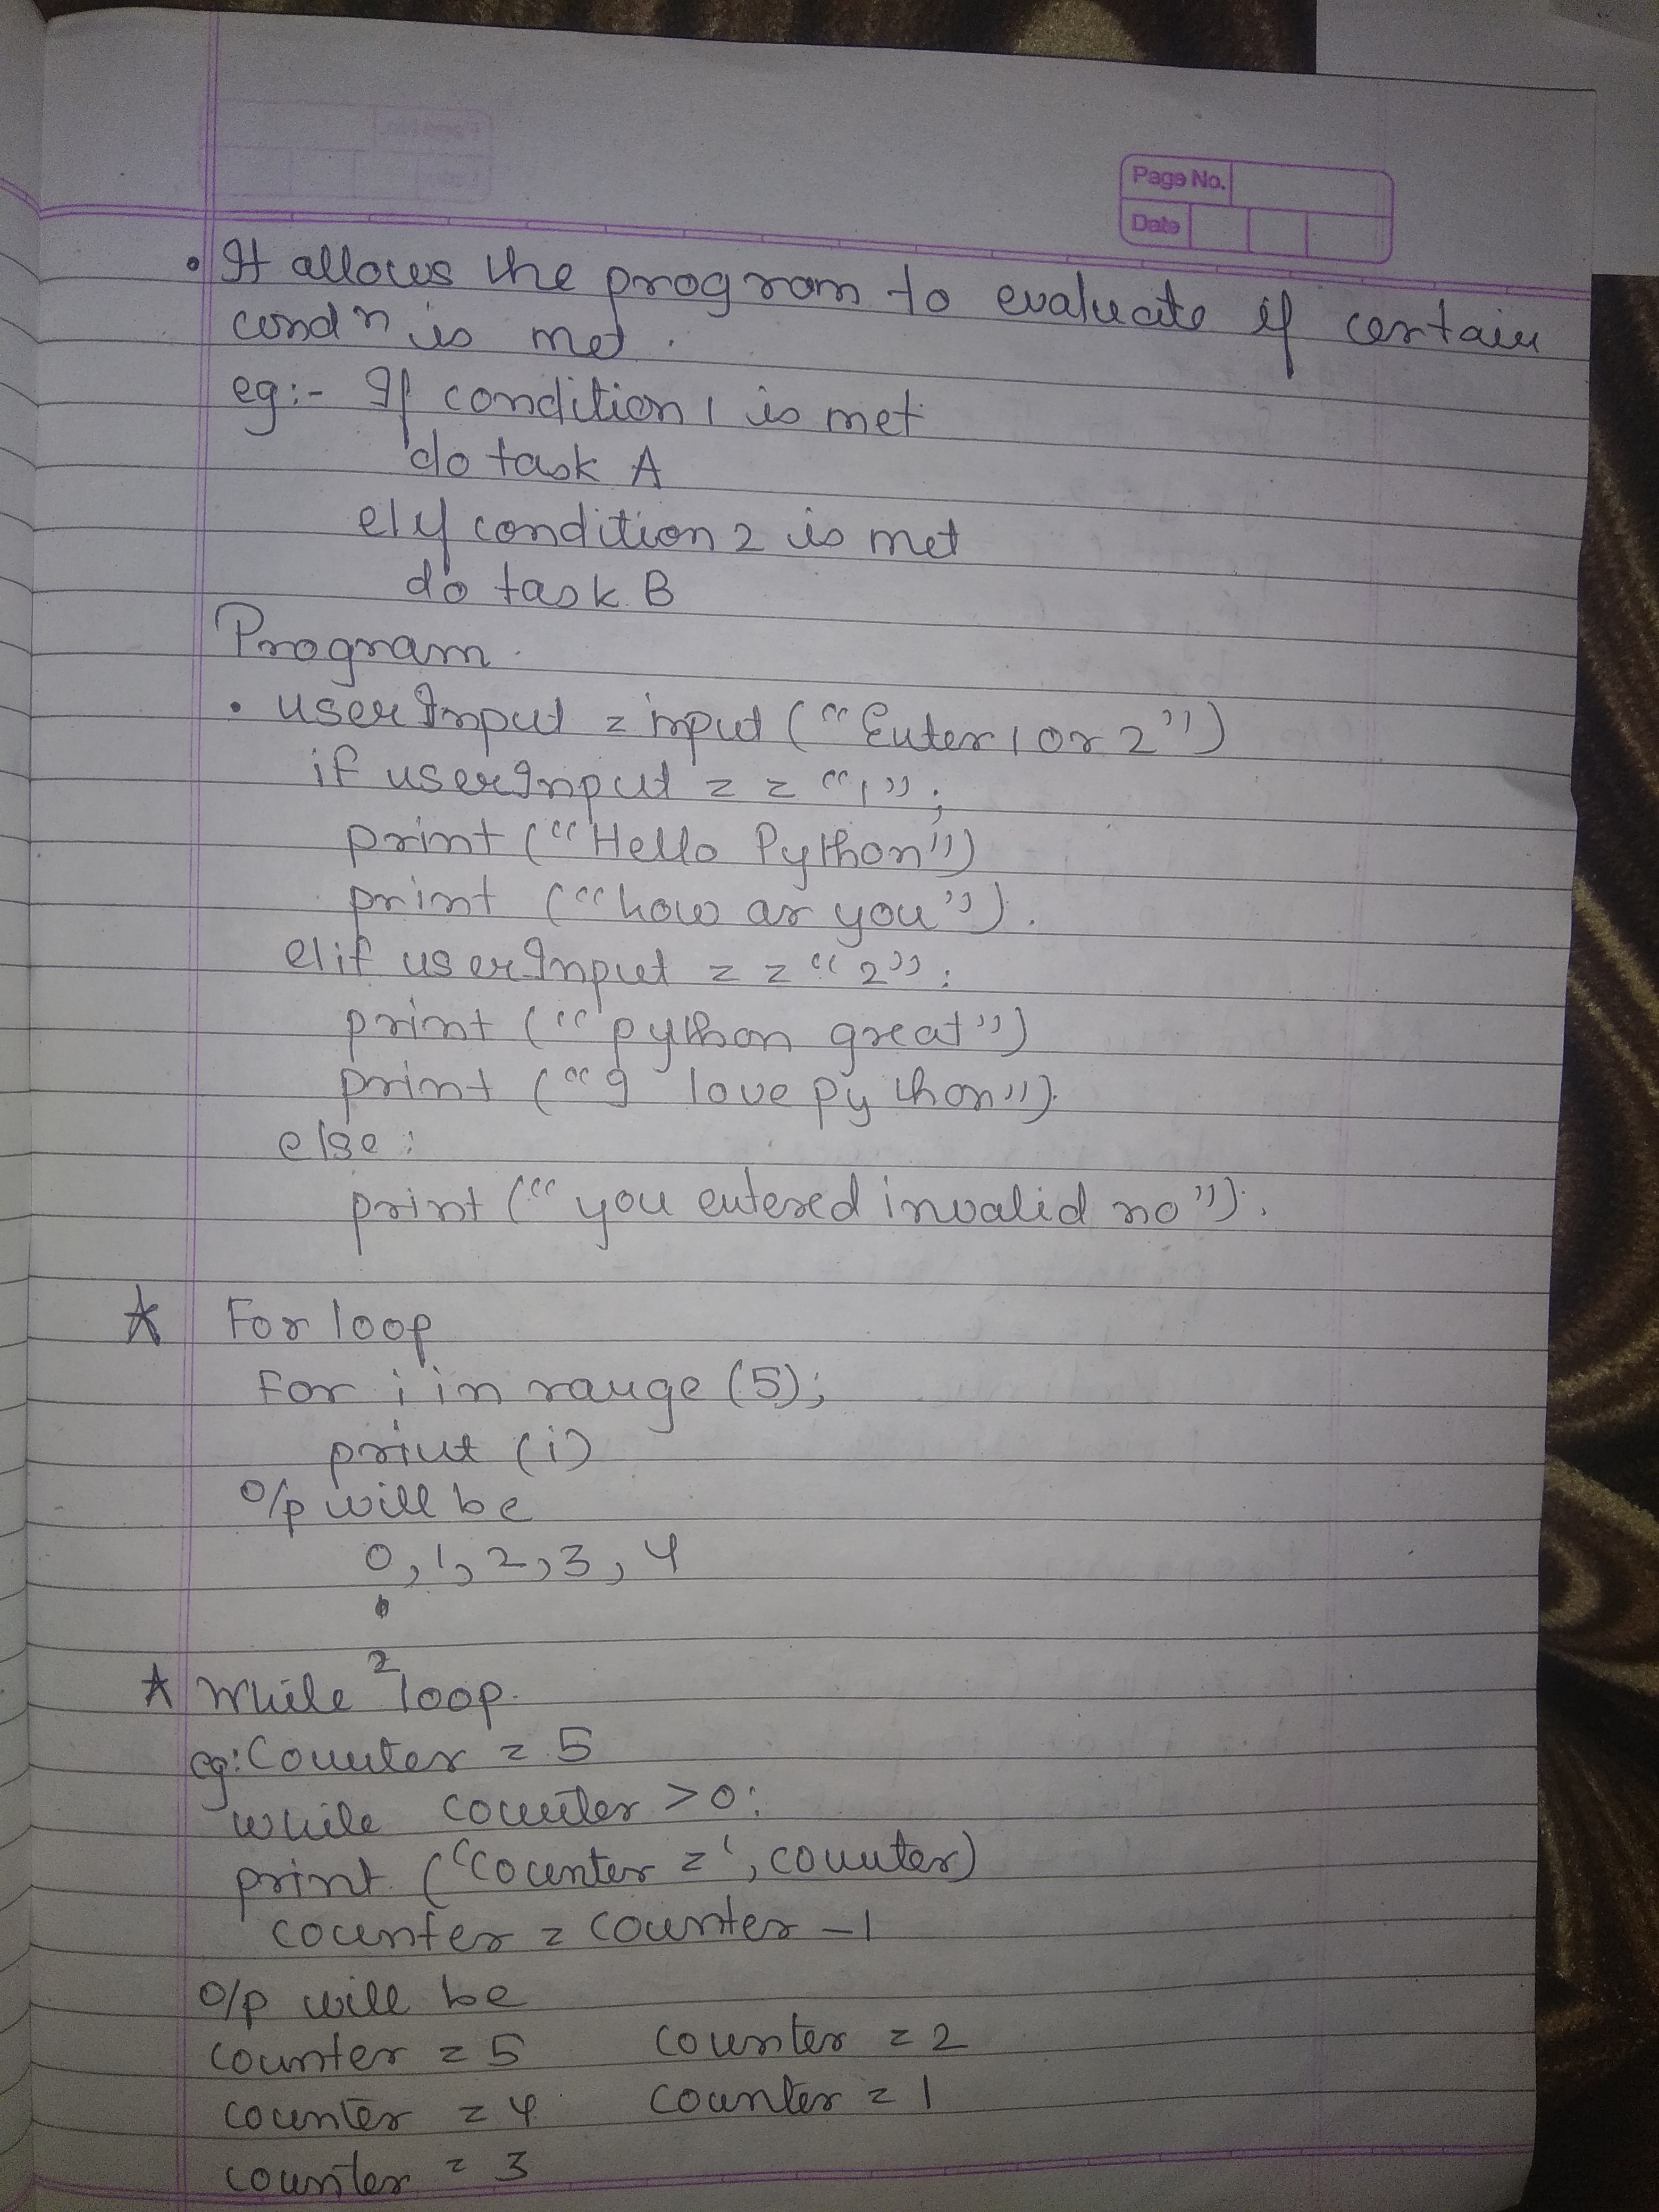 Page No.
Date
• It allows the program to evaluate if certain
condn is met.
eg:- If condition 1 is met
do task A
elif condition 2 is met
do task B
Program.
• userInput = input ("Enter 1 or 2")
if userInput = = "1";
print ("Hello Python")
print ("how ar you").
elif userInput = = "2":
print ("python great")
print ("I love python").
else:
print ("you entered invalid no").
★ For loop
For i in range (5);
print (i)
O/p will be
0, 1, 2, 3, 4
2
★ While loop.
eg: Counter = 5
while counter > 0:
print ('Counter = ', counter)
counter = counter - 1
O/p will be
counter = 5 counter = 2
counter = 4 counter = 1
counter = 3